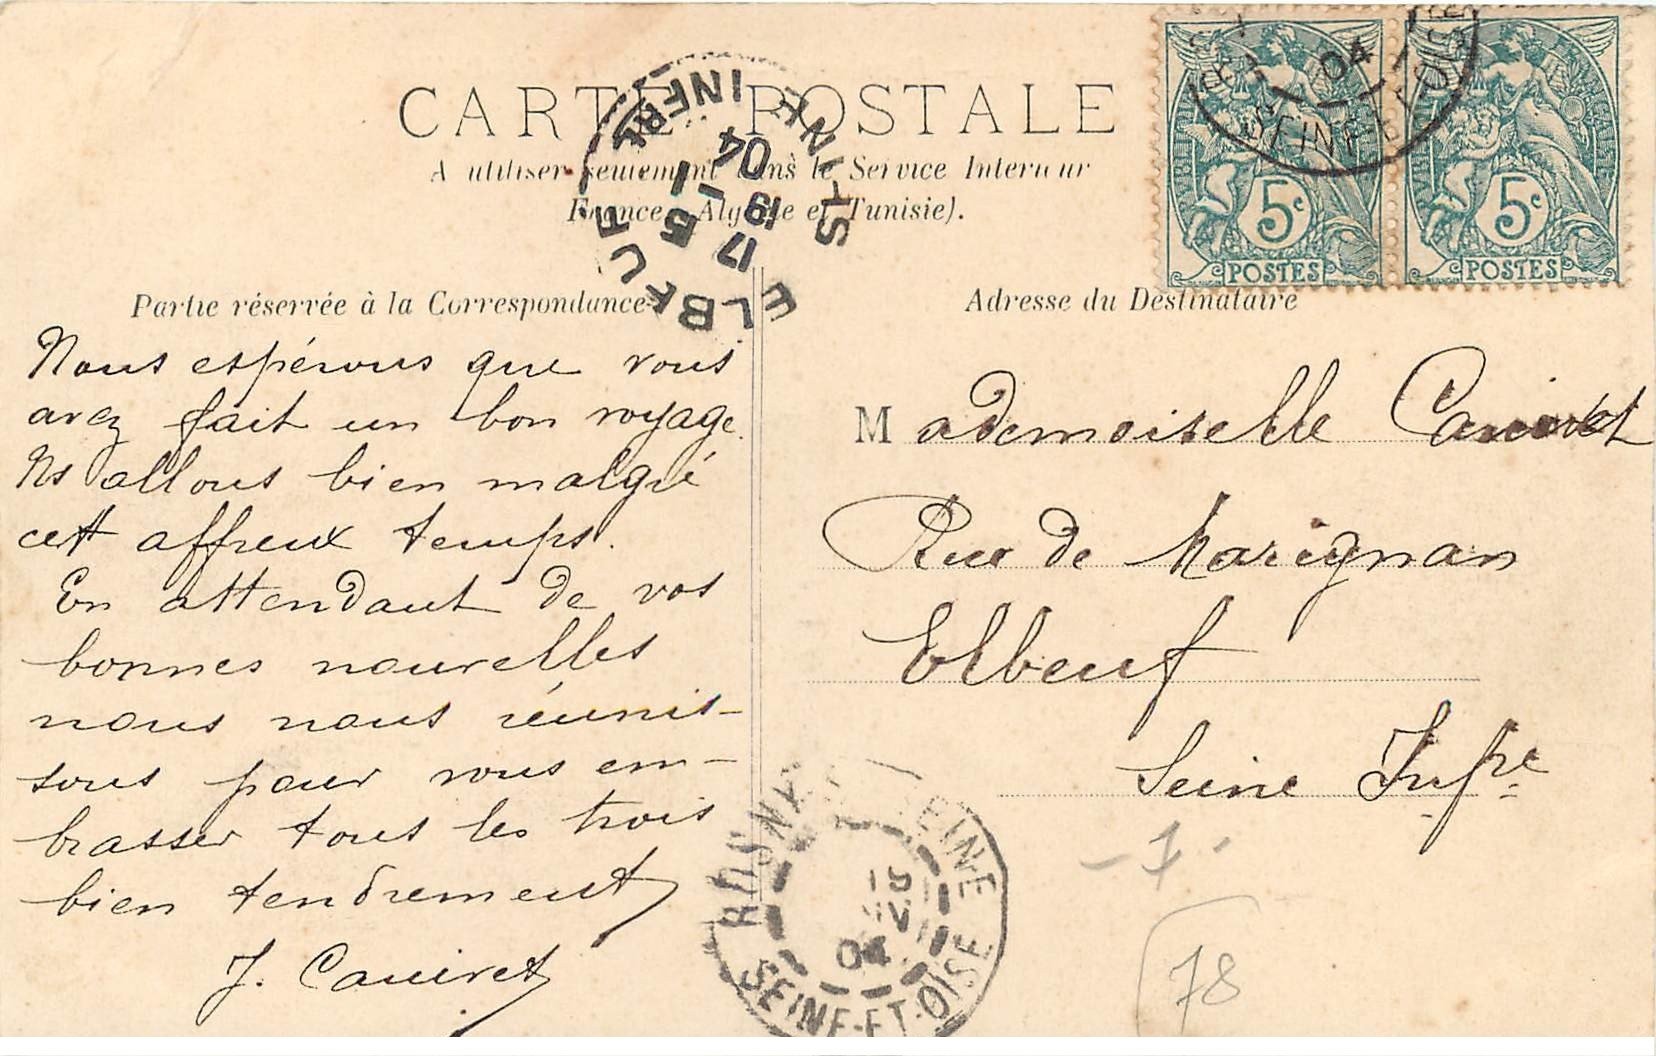 CARTE POSTALE
A utiliser seulement dans le Service Interieur
France, Algérie et Tunisie).
ELBEUF
SEINE-INFRE
17 5
1904
REPUBLIQUE FRANCAISE
5c
POSTES
REPUBLIQUE FRANCAISE
5c
POSTES
04
SEINE-ET-OISE
Partie réservée à la Correspondance
Nous espérons que vous
avez fait un bon voyage.
Ns allons bien malgré
cett affreux temps.
En attendant de vos
bonnes nouvelles
nous nous réunis-
sons pour vous em-
brasser tous les trois
bien tendrement
J. Canivet
Adresse du Destinataire
Mademoiselle Canivet
Rue de Marignan
Elbeuf
Seine Infre
ROSNY SEINE
04
SEINE-ET-OISE
- 1 -
78